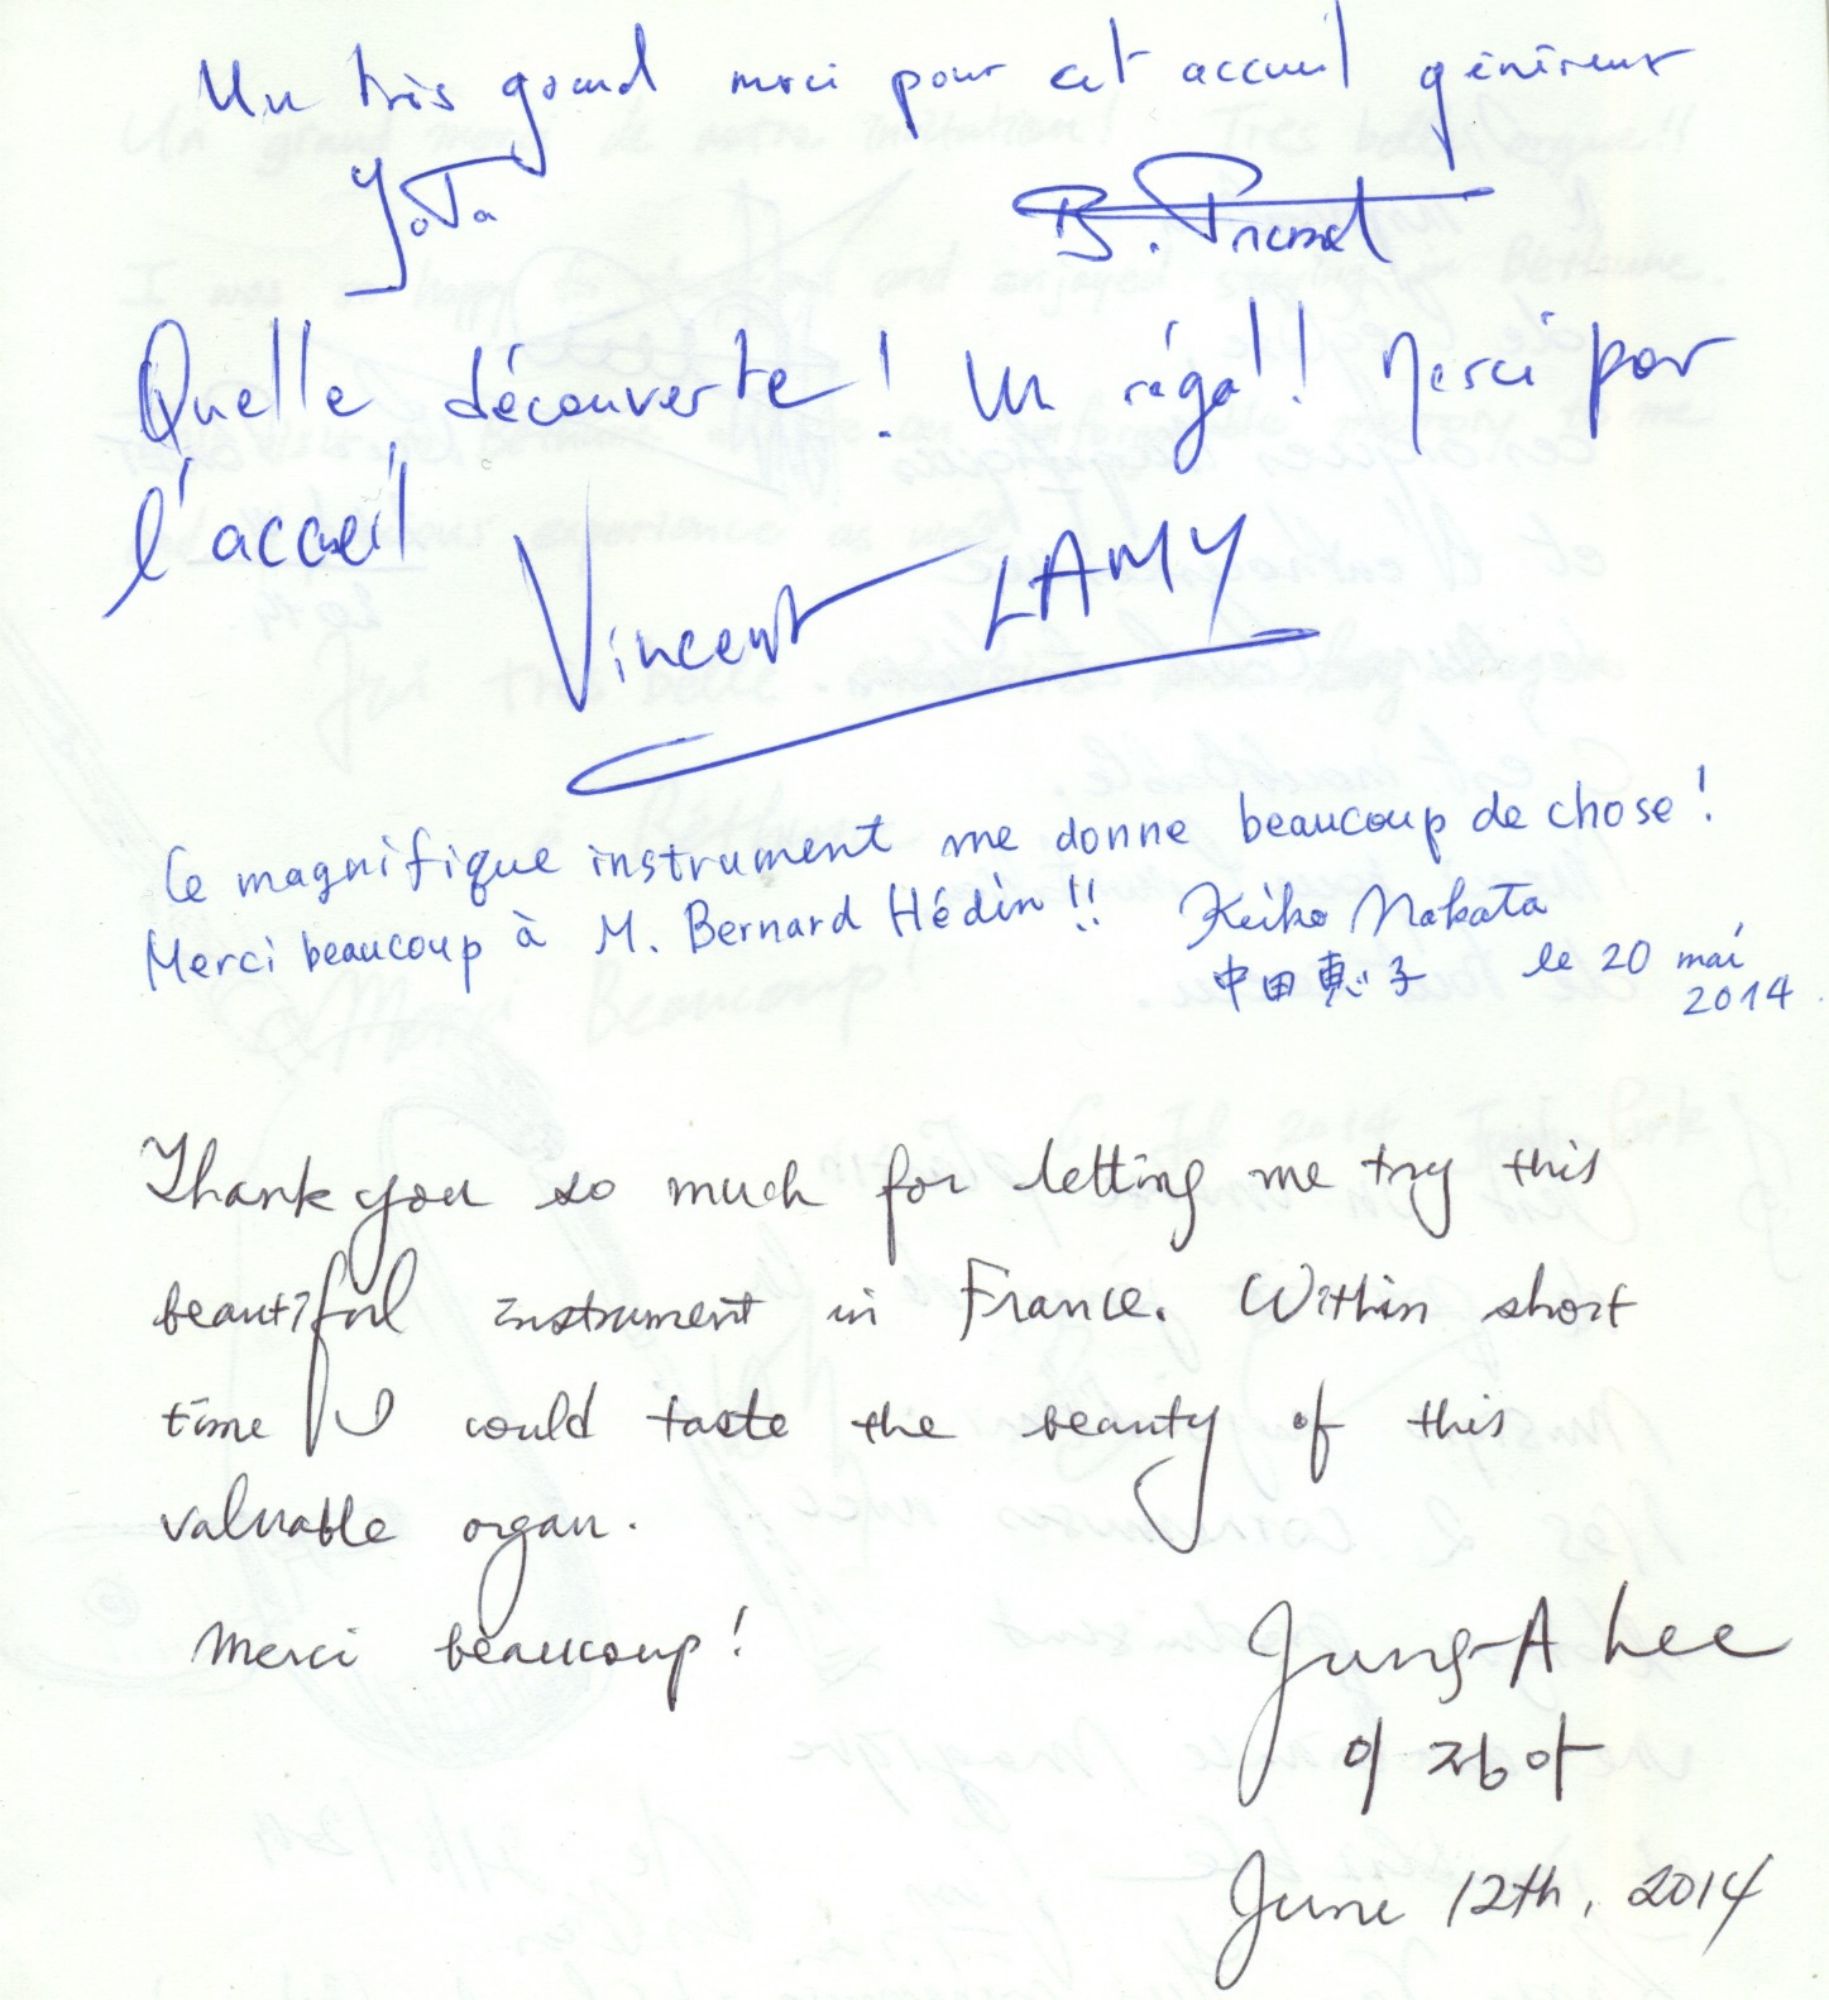 Un très grand merci pour cet accueil généreux
YoTa
B.
Quelle découverte ! Un régal ! Merci por
l'accueil
Vincent LAMY
Ce magnifique instrument me donne beaucoup de chose !
Merci beaucoup à M. Bernard Hédin !! Keiko Nakata
中田恵子 le 20 mai
2014
Thank you so much for letting me try this
beautiful instrument in France. Within short
time I could taste the beauty of this
valuable organ.
Merci beaucoup !
Jung-A Lee
이정아
June 12th, 2014